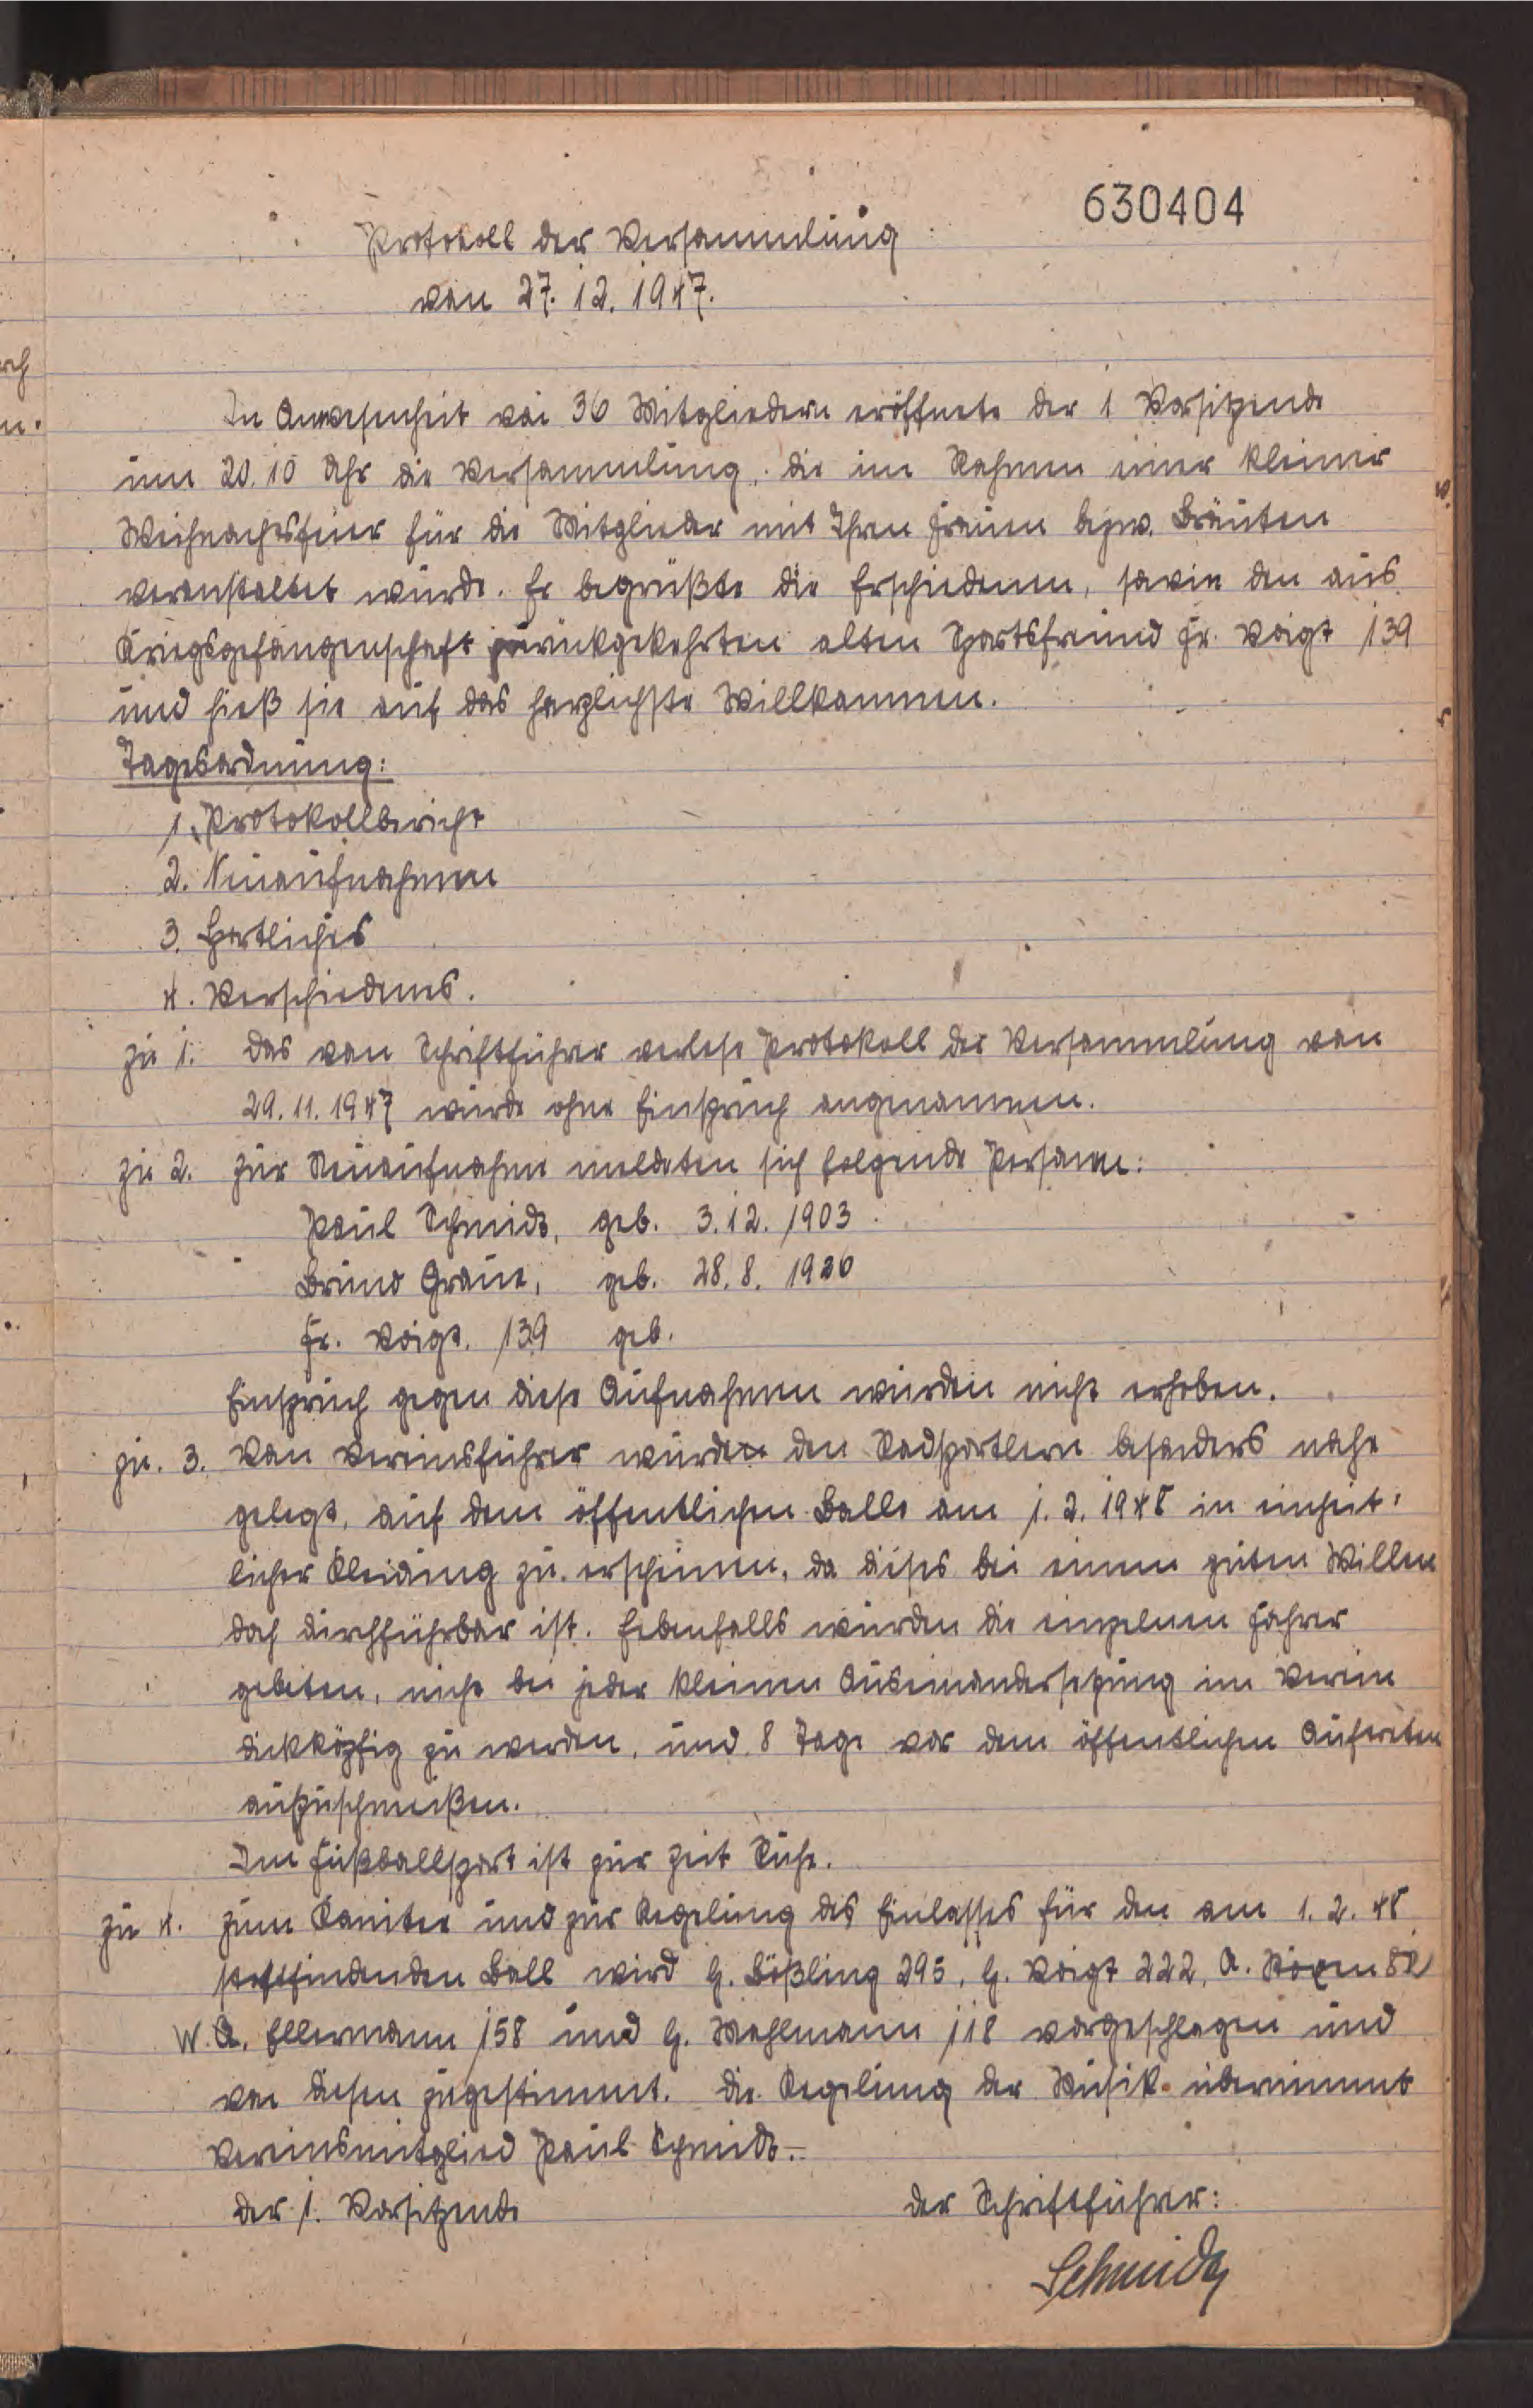 630404
Protokoll der Versammlung
vom 27.12.1947.
In Anwesenheit von 36 Mitgliedern eröffnete der 1 Vorsitzende
um 20.10 Uhr die Versammlung, die im Rahmen einer kleiner
Weihnachtsfeier für die Mitglieder mit Ihren Frauen bezw. Bräuten
veranstaltet wurde. Er begrüßte die Erschiedenen, sowie den aus
Kriegsgefangenschaft zurückgekehrten alten Sportsfreund Fr. Voigt 139
und hieß sie auf das herzlichste Willkommen.
Tagesordnung:
1. Protokollbericht
2. Neuaufnahmen
3. Sportliches
4. Verschiedenes.
zu 1. Das vom Schriftführer verlese Protokoll der Versammlung vom
29.11.1947 wurde ohne Einspruch angenommen.
zu 2. Zur Neuaufnahme meldeten sich folgende Personen:
Paul Schmidt, geb. 3.12.1903
Bruno Graue, geb. 28.8.1926
Fr. Voigt. 139 geb.
Einspruch gegen diese Aufnahmen wurden nicht erhoben.
zu. 3. Vom Vereinsführer wurde den Radsportlern besonders nahe
gelegt, auf dem öffentlichen Balle am 1.2.1948 in einheit-
licher Kleidung zu erscheinen, da dieses bei einem guten Willen
doch durchführbar ist. Ebenfalls wurden die einzelnen Fahrer
gebeten, nicht bei jeder kleinen Auseinandersetzung im Verein
dickköpfig zu werden, und 8 Tage vor dem öffentlichen Aufreten
aufzuschmeißen.
Im Fußballsport ist zur Zeit Ruhe.
zu 4. Zum Komitee und zur Regelung des Einlasses für den am 1.2.48
stattfindenden Ball wird H. Bößling 295, H. Voigt 222, A. 82
W. A. Ellermann 158 und H. Wehlmann 118 vorgeschlagen und
von diesen zugestimmt. Die Regelung der Musik übernimmt
Vereinsmitglied Paul Schmidt.-
Der 1. Vorsitzende Der Schriftführer:
Schmidt